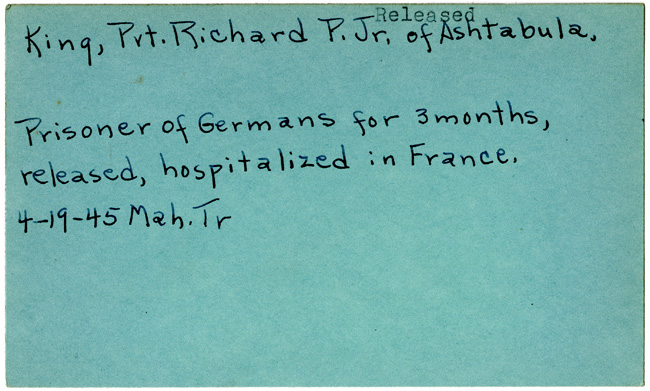 Released
King, Pvt. Richard P. Jr. of Ashtabula.
Prisoner of Germans for 3 months,
released, hospitalized in France.
4-19-45 Mah. Tr